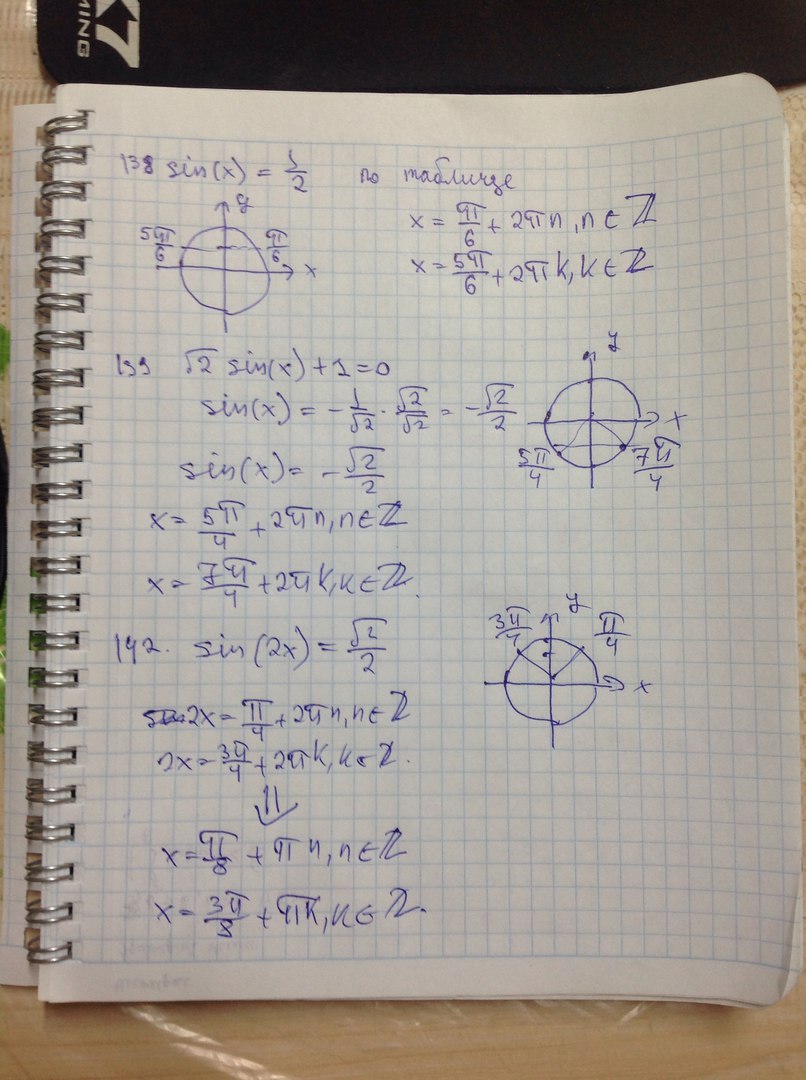 K7
MING
138 sin(x) = 1/2 по таблице
y
5π/6 π/6 x
x = π/6 + 2πn, n ∈ ℤ
x = 5π/6 + 2πk, k ∈ ℤ
139 √2 sin(x) + 1 = 0
sin(x) = -1/√2 · √2/√2 = -√2/2
y
x
5π/4 7π/4
sin(x) = -√2/2
x = 5π/4 + 2πn, n ∈ ℤ
x = 7π/4 + 2πk, k ∈ ℤ.
142. sin(2x) = √2/2
3π/4 y π/4
x
2x = π/4 + 2πn, n ∈ ℤ
2x = 3π/4 + 2πk, k ∈ ℤ.
⇓
x = π/8 + πn, n ∈ ℤ
x = 3π/8 + πk, k ∈ ℤ.